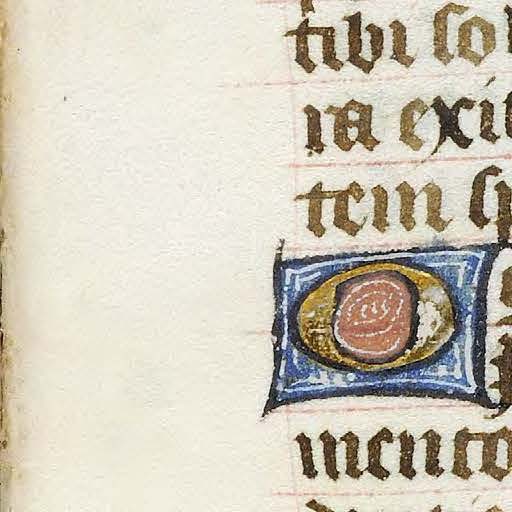 tibi so
ra exit
tem sp
O
mento